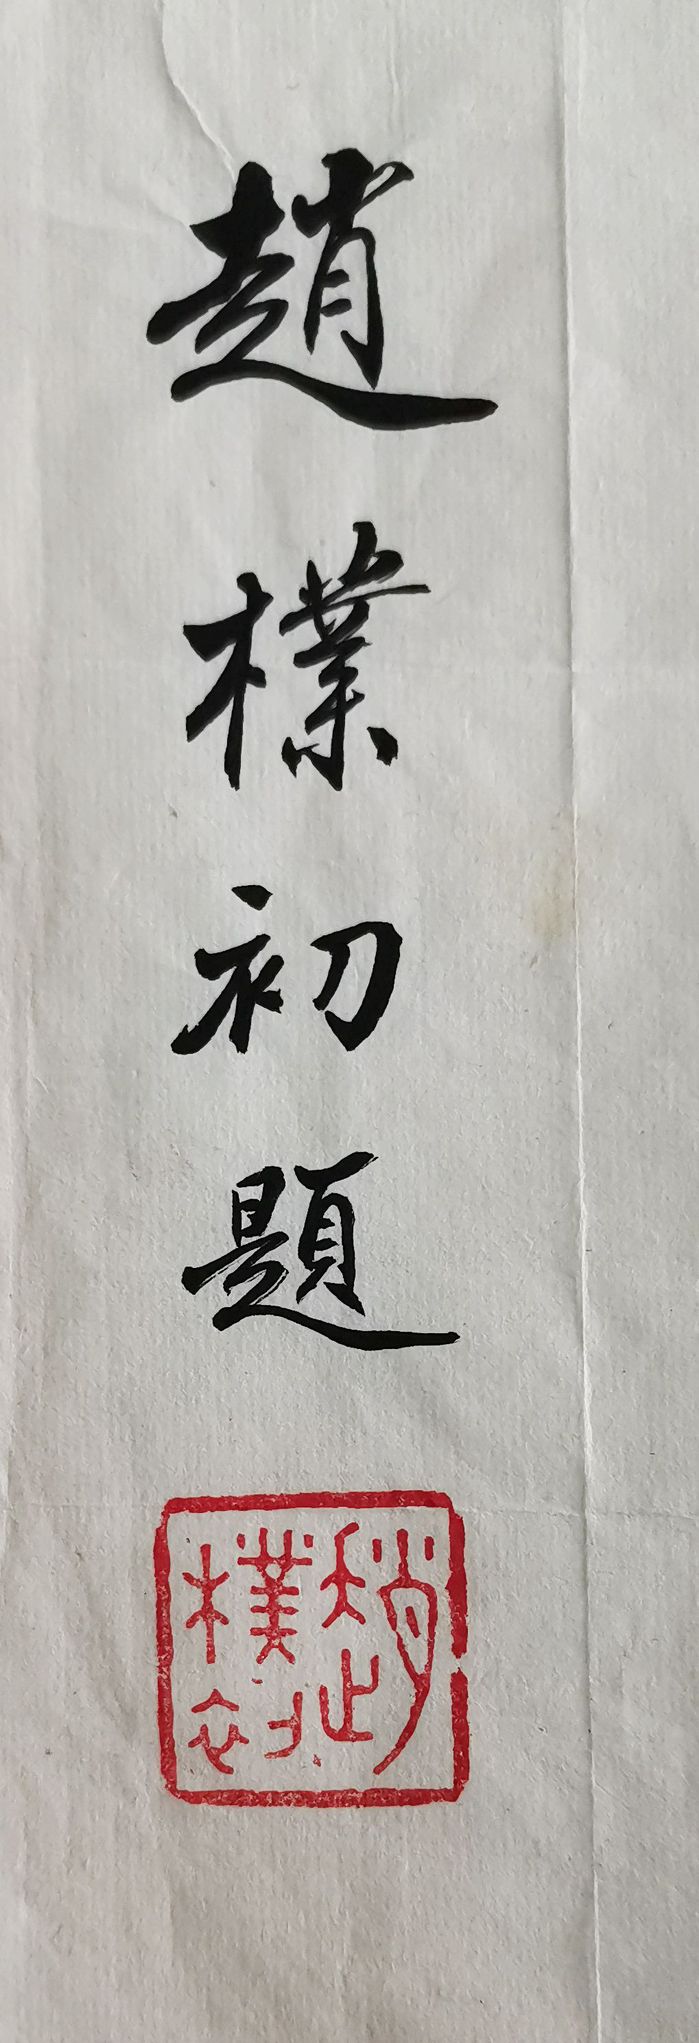 趙樸初題
趙樸初